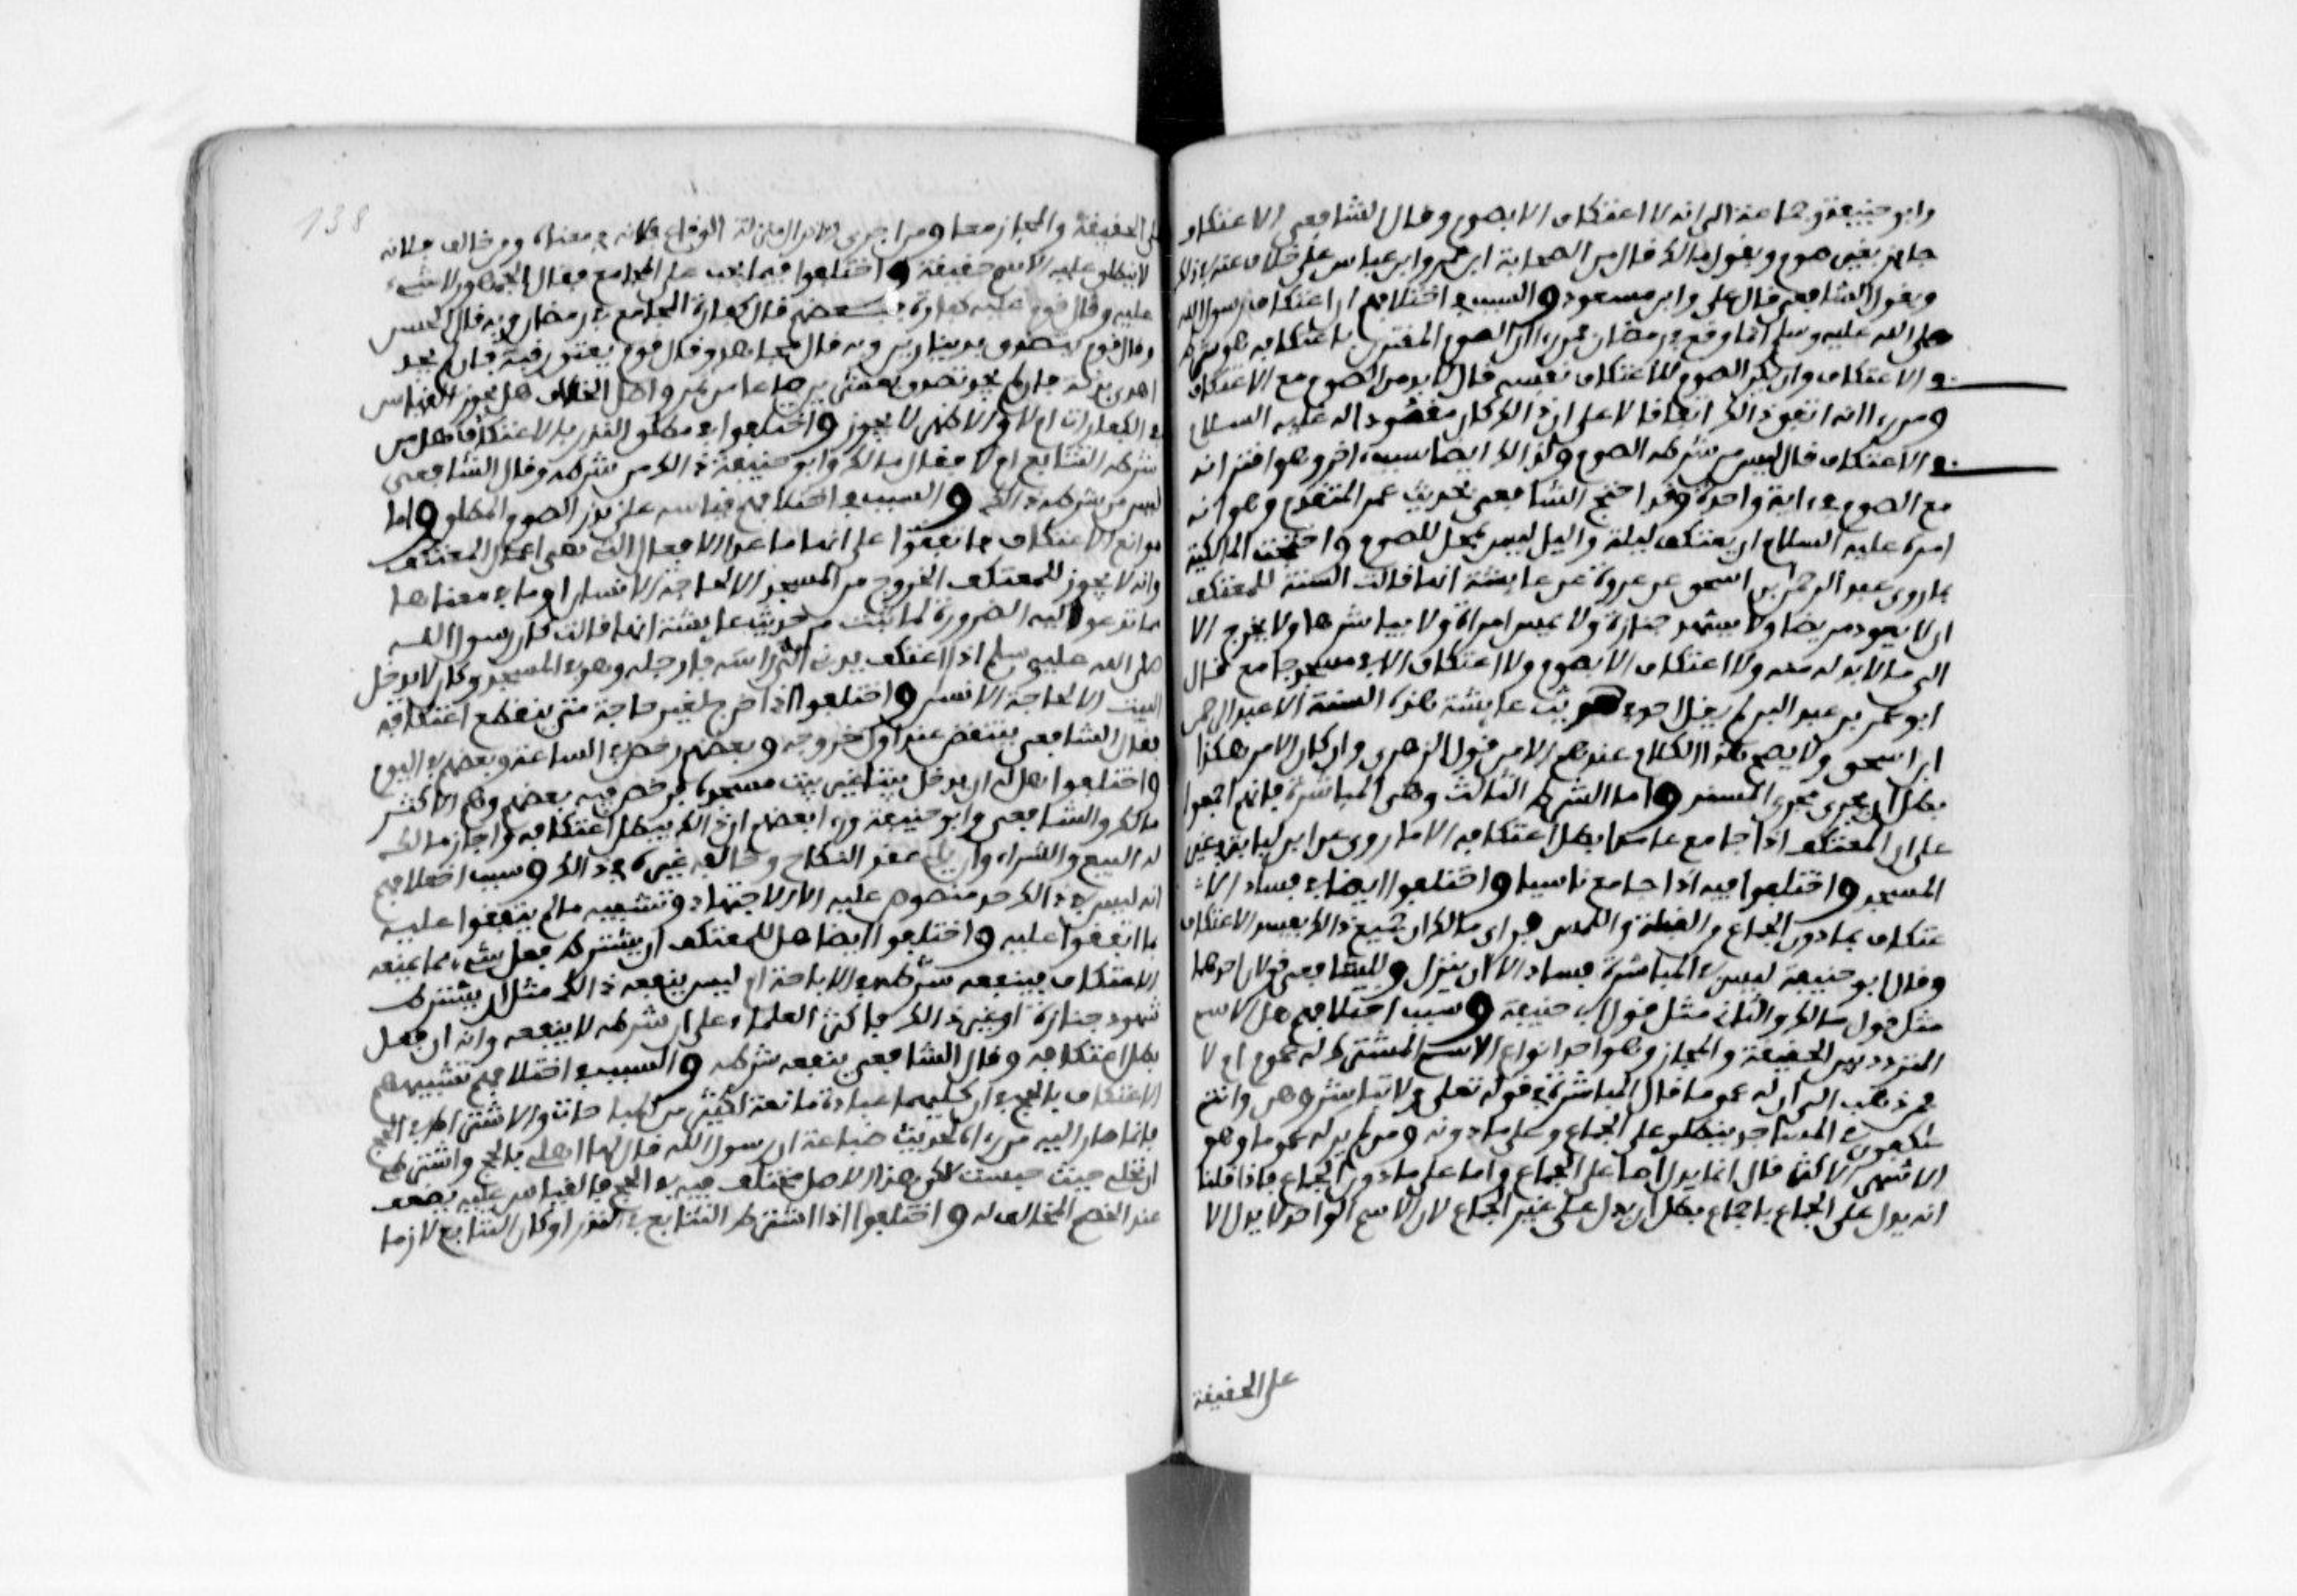 وابو حنيفة وجماعة الى انه لا اعتكاف الا بصوم وقال الشافعي الاعتكاف
جايز بغير صوم وبقول مالك قال من الصحابة ابن عمر وابن عباس على خلاف عنه في ذلك
وبقول الشافعي قال على وابن مسعود والسبب في اختلافهم ان اعتكاف رسول الله
صلى الله عليه وسلم انما وقع في رمضان فمن رءا ان الصوم المقترن باعتكافه هو شرط
في الاعتكاف وان لم يكن الصوم للاعتكاف نفسه قال لا بد من الصوم مع الاعتكاف
ومن رءا انه انما اتفق ذالك اتفاقا لا على ان ذالك كان مقصودا له عليه السلام
في الاعتكاف قال ليس من شرطه الصوم ولذالك ايضا سبب اخر وهو اقترانه
مع الصوم في ءاية واحدة وقد احتج الشافعي بحديث عمر المتقدم وهو انه
امره عليه السلام ان يعتكف ليلة واليل ليس بمحل للصوم واحتجت المالكية
بما روى عبد الرحمن بن اسحق عن عروة عن عايشة انها قالت السنة للمعتكف
ان لا يعود مريضا ولا يشهد جنازة ولا يمس امراة ولا يباشرها ولا يخرج الا
الى ما لا بد له منه ولا اعتكاف الا بصوم ولا اعتكاف الا في مسجد جامع قال
ابو عمر بن عبد البر لم يقل احد في حديث عايشة هذه السنة الا عبد الرحمن
ابن اسحق ولا يصح هذا الكلام عندهم الا من قول الزهري وان كان الامر هكذا
بطل ان يجري مجرى المسند واما الشرط الثالث وهي المباشرة فانهم اجمعوا
على ان المعتكف اذا جامع عامدا بطل اعتكافه الا ما روي عن ابن لبابة في غير
المسجد واختلفوا فيه اذا جامع ناسيا واختلفوا ايضا في فساد الا
عتكاف بما دون الجماع من القبلة واللمس فراى مالك ان جميع ذالك يفسد الاعتكاف
وقال ابو حنيفة ليس في المباشرة فساد الا ان ينزل وللشافعي قولان احدهما
مثل قول مالك والثاني مثل قول ابي حنيفة وسبب اختلافهم هل الاسم
المتردد بين الحقيقة والمجاز وهو احد انواع الاسم المشترك له عموم ام لا
فمن ذهب الى ان له عموما قال المباشرة في قوله تعلى ولا تباشروهن وانتم
عاكفون في المساجد ينطلق على الجماع وعلى ما دونه ومن لم ير له عموما وهو
الاشهر الاكثر قال انما يدل اما على الجماع واما على ما دون الجماع فاذا قلنا
انه يدل على الجماع باجماع بطل ان يدل على غير الجماع لان الاسم الواحد لا يدل الا
على الحقيقة
138
على الحقيقة والمجاز معا ومن اجرى الانزال بمنزلة الوقاع فلانه في معناه ومن خالف فلانه
لا ينطلق عليه الاسم حقيقة واختلفوا فيما يجب على المجامع فقال الجمهور لا شيء
عليه وقال قوم عليه كفارة فبعضهم قال كفارة المجامع في رمضان وبه قال الحسن
وقال قوم يتصدق بدينارين وبه قال مجاهد وقال قوم يعتق رقبة فان لم يجد
اهدى بدنة فان لم يجد تصدق بعشرين صاعا من تمر واصل الخلاف هل يجوز القياس
في الكفارات ام لا والاظهر لا يجوز واختلفوا في مطلق النذر بالاعتكاف هل من
شرطه التتابع ام لا فقال مالك وابو حنيفة ذالك من شرطه وقال الشافعي
ليس من شرطه ذالك والسبب في اختلافهم قياسه على نذر الصوم المطلق واما
موانع الاعتكاف فاتفقوا على انها ما عدا الافعال التي هي اعمال المعتكف
وانه لا يجوز للمعتكف الخروج من المسجد الا لحاجة الانسان او ما في معناها
مما تدعو اليه الضرورة لما ثبت من حديث عايشة انها قالت كان رسول الله
صلى الله عليه وسلم اذا اعتكف يدني الي راسه فارجله وهو في المسجد وكان لا يدخل
البيت الا لحاجة الانسن واختلفوا اذا خرج لغير حاجة متى ينقطع اعتكافه
فقال الشافعي ينتقض عند اول خروجه وبعضهم رخص في الساعة وبعضهم في اليوم
واختلفوا هل له ان يدخل بيتا غير بيت مسجده فرخص فيه بعضهم وهم الاكثر
مالك والشافعي وابو حنيفة ورءا بعضهم ان ذالك يبطل اعتكافه واجاز مالك
له البيع والشراء وان يلي عقد النكاح وخالفه غيره في ذالك وسبب اختلافهم
انه ليس في ذالك حد منصوص عليه الا الاجتهاد وتشبيه ما لم يتفقوا عليه
بما اتفقوا عليه واختلفوا ايضا هل للمعتكف ان يشترط فعل شيء مما يمنعه
الاعتكاف فينفعه شرطه في الاباحة ام ليس ينفعه ذالك مثل ان يشترط
شهود جنازة او غير ذالك فاكثر العلماء على ان شرطه لا ينفعه وانه ان فعل
بطل اعتكافه وقال الشافعي ينفعه شرطه والسبب في اختلافهم تشبيههم
الاعتكاف بالحج في ان كليهما عبادة مانعة لكثير من المباحات والاشتراط في الحج
انما صار اليه من رءاه لحديث ضباعة ان رسول الله قال لها اهلي بالحج واشترطي
ان تحلي حيث حبست لاكن هذا الاصل مختلف فيه في الحج فالقياس عليه يضعف
عند الخصم المخالف له واختلفوا اذا اشترط التتابع في النذر او كان التتابع لازما